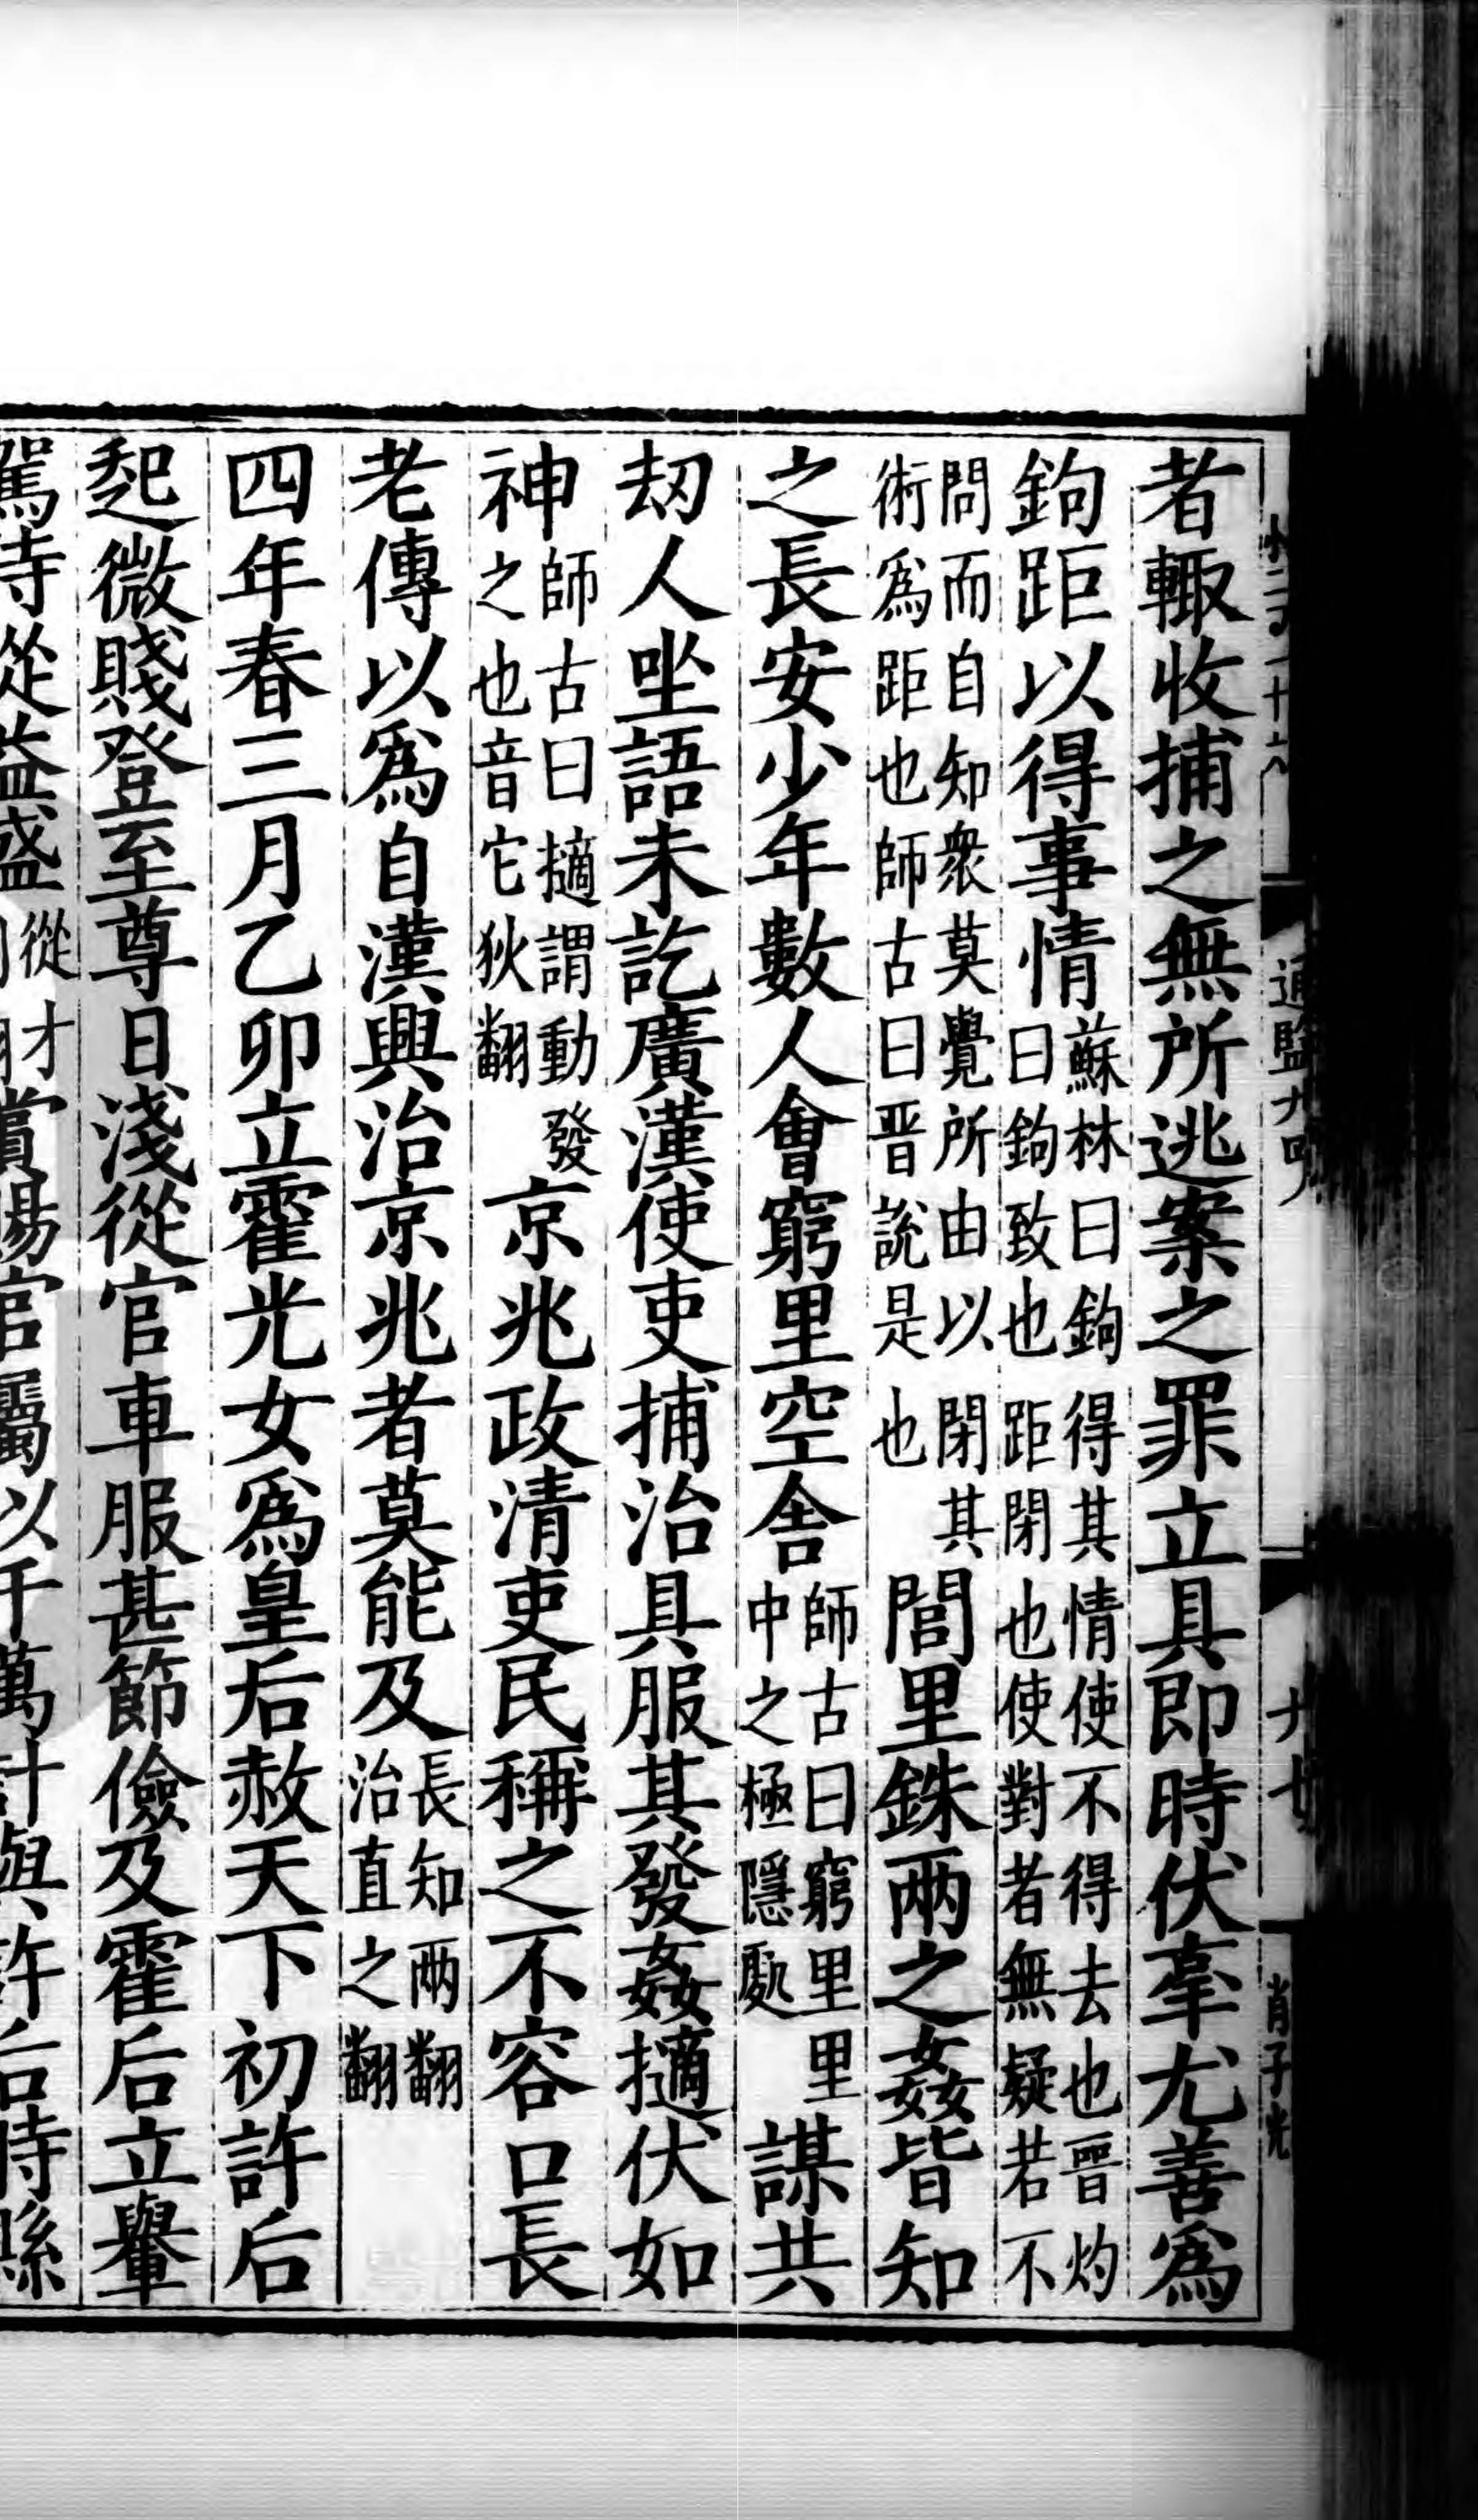 者輙收捕之無所逃案之罪立具即時伏辜尤善爲
鉤距以得事情蘇林曰鉤得其情使不得去也晉灼曰鉤致也距閉也使對者無疑若不
問而自知衆莫覺所由以閉其術爲距也師古曰晉說是也閭里銖兩之姦皆知
之長安少年數人會窮里空舍師古曰窮里里中之極隱處謀共
刼人坐語未訖廣漢使吏捕治具服其發姦擿伏如
神師古曰擿謂動發之也音它狄翻京兆政清吏民稱之不容口長
老傳以爲自漢興治京兆者莫能及長知兩翻治直之翻
四年春三月乙卯立霍光女爲皇后赦天下初許后
起微賤登至尊日淺從官車服甚節儉及霍后立轝
駕侍從益盛從才賞賜官屬以千萬計與許后時縣